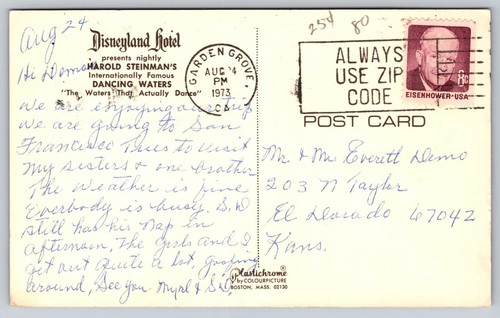 25¢ 80
Aug 24
Disneyland Hotel
presents nightly
HAROLD STEINMAN'S
Internationally Famous
DANCING WATERS
"The Waters That Actually Dance"
GARDEN GROVE
AUG 24
PM
1973
ALWAYS
USE ZIP
CODE
8¢
EISENHOWER·USA
POST CARD
Hi Demos
We are enjoying our trip
We are going to San
Francisco Tues to visit
My sisters & one brother
The Weather is fine
Everbody is busy. S.D
still has his nap in
afternoon, The Gals and I
get out quite a bit, goofing
around, See you. Myrl & S.D.
Plastichrome®
by COLOURPICTURE
BOSTON, MASS. 02130
Mr & Mrs Everett Demo
203 N Taylor
El Dorado 67042
Kans.